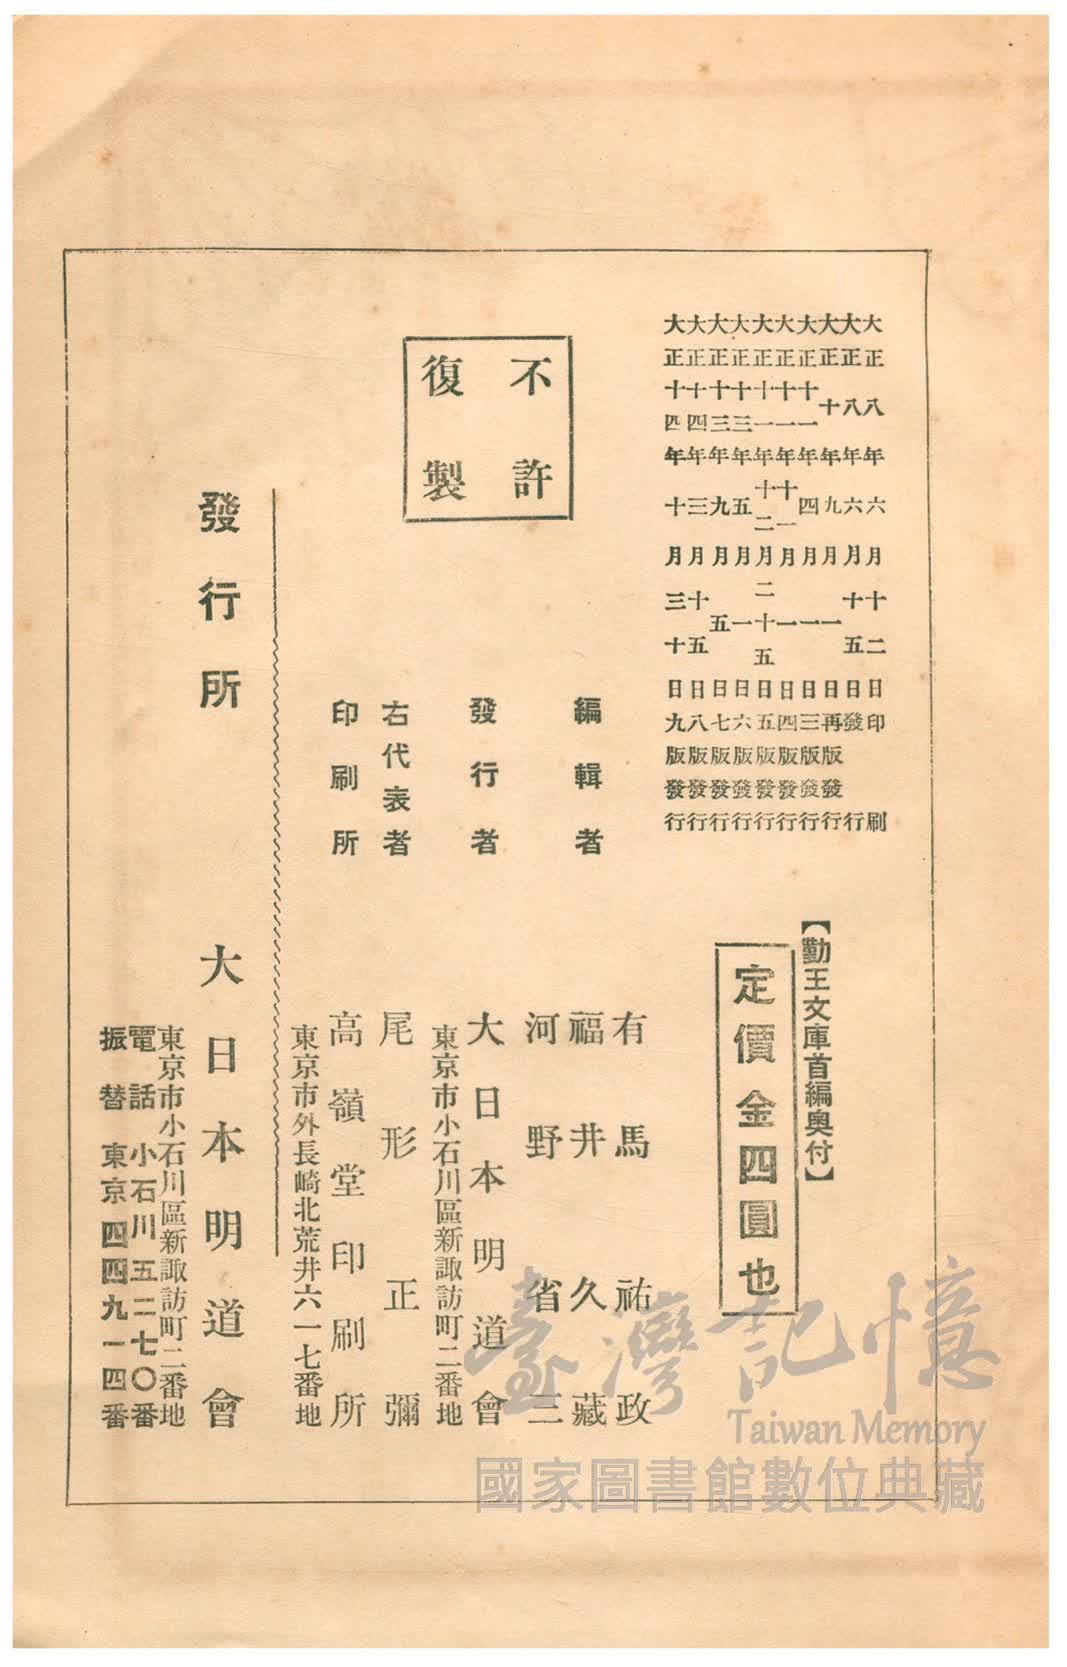 大正八年六月十二日印刷
大正八年六月十五日發行
大正十年九月一日再版發行
大正十一年四月一日三版發行
大正十一年十一月一日四版發行
大正十一年十二月二十五日五版發行
大正十三年五月一日六版發行
大正十三年九月五日七版發行
大正十四年三月十五日八版發行
大正十四年十月三十日九版發行
【勤王文庫首編奧付】
定價金四圓也
不許
復製
編輯者
有馬祐政
福井久藏
河野省三
發行者
大日本明道會
東京市小石川區新諏訪町二番地
右代表者
尾形正彌
印刷所
高嶺堂印刷所
東京市外長崎北荒井六一七番地
發行所
大日本明道會
東京市小石川區新諏訪町二番地
電話小石川五二七〇番
振替東京四四九一四番
臺灣記憶
Taiwan Memory
國家圖書館數位典藏